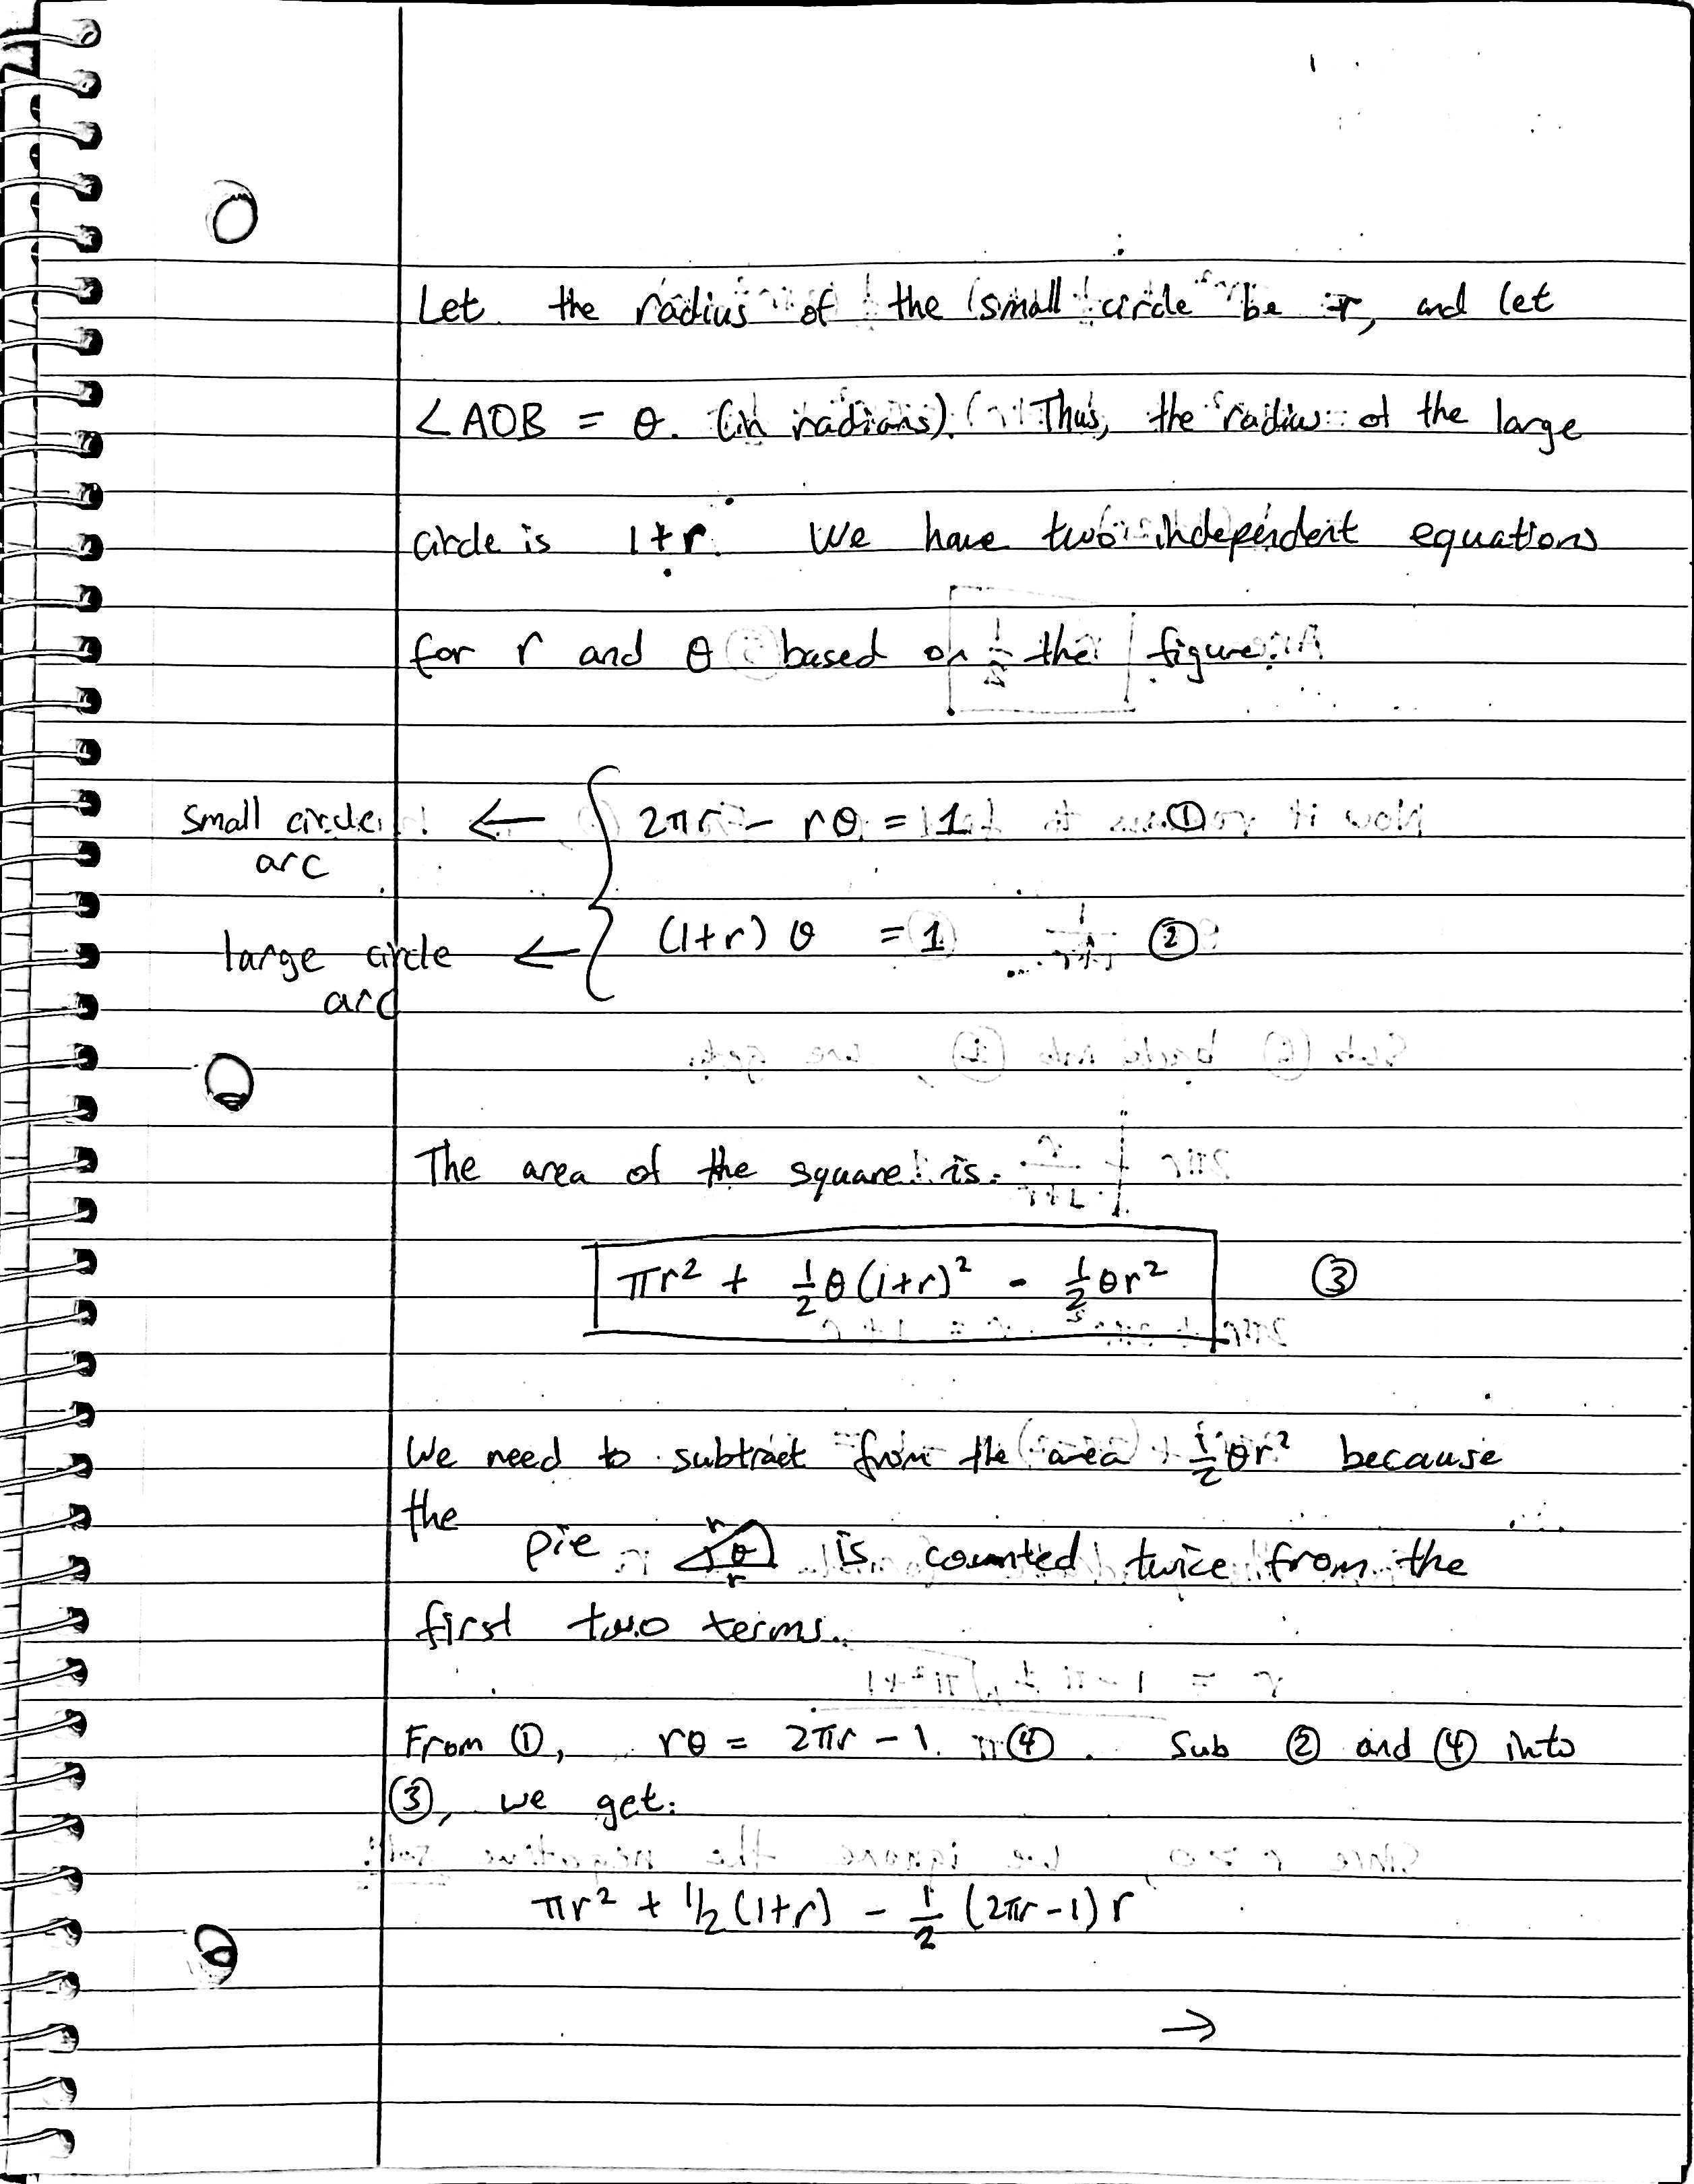 Let the radius of the small circle be r, and let
∠AOB = θ. (in radians). Thus, the radius of the large
circle is 1+r. We have two independent equations
for r and θ based on the figure:
small circle arc ← { 2πr - rθ = 1 ①
large circle arc ← { (1+r) θ = 1 ②
The area of the square is:
πr² + ½θ(1+r)² - ½θr² ③
We need to subtract from the area ½θr² because
the
pie r θ r is counted twice from the
first two terms.
From ①, rθ = 2πr - 1 ④. Sub ② and ④ into
③, we get:
πr² + 1/2 (1+r) - ½ (2πr-1) r
→